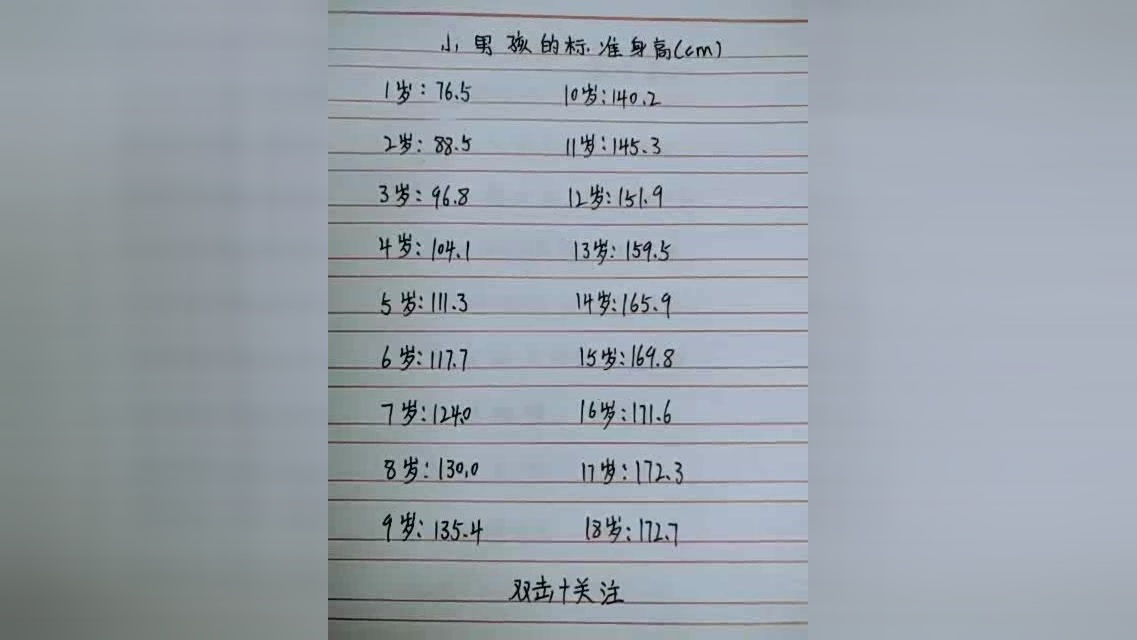 小男孩的标准身高(cm)
1岁:76.5 10岁:140.2
2岁:88.5 11岁:145.3
3岁:96.8 12岁:151.9
4岁:104.1 13岁:159.5
5岁:111.3 14岁:165.9
6岁:117.7 15岁:169.8
7岁:124.0 16岁:171.6
8岁:130.0 17岁:172.3
9岁:135.4 18岁:172.7
双击+关注